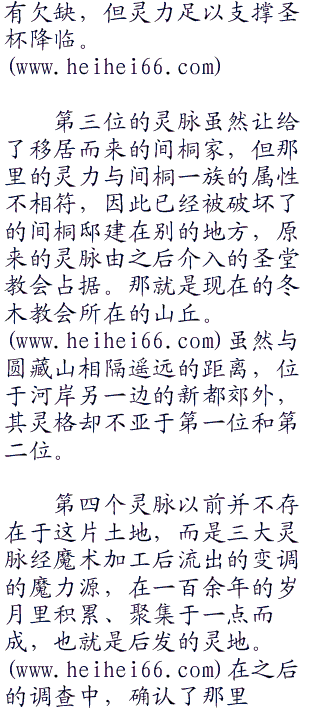 有欠缺，但灵力足以支撑圣
杯降临。
(www.heihei66.com)
第三位的灵脉虽然让给
了移居而来的间桐家，但那
里的灵力与间桐一族的属性
不相符，因此已经被破坏了
的间桐邸建在别的地方，原
来的灵脉由之后介入的圣堂
教会占据。那就是现在的冬
木教会所在的山丘。
(www.heihei66.com)虽然与
圆藏山相隔遥远的距离，位
于河岸另一边的新都郊外，
其灵格却不亚于第一位和第
二位。
第四个灵脉以前并不存
在于这片土地，而是三大灵
脉经魔术加工后流出的变调
的魔力源，在一百余年的岁
月里积累、聚集于一点而
成，也就是后发的灵地。
(www.heihei66.com)在之后
的调查中，确认了那里